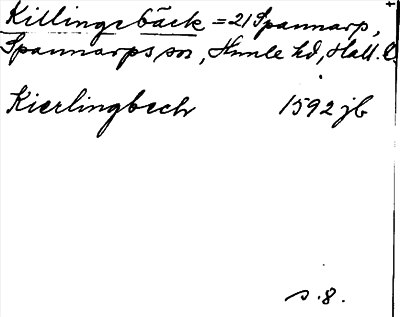 Killingsbäck = 21 Spannarp,
Spannarps sn, Himle hd, Hall. l.
Kierlingbech 1592 jb
s. 8.